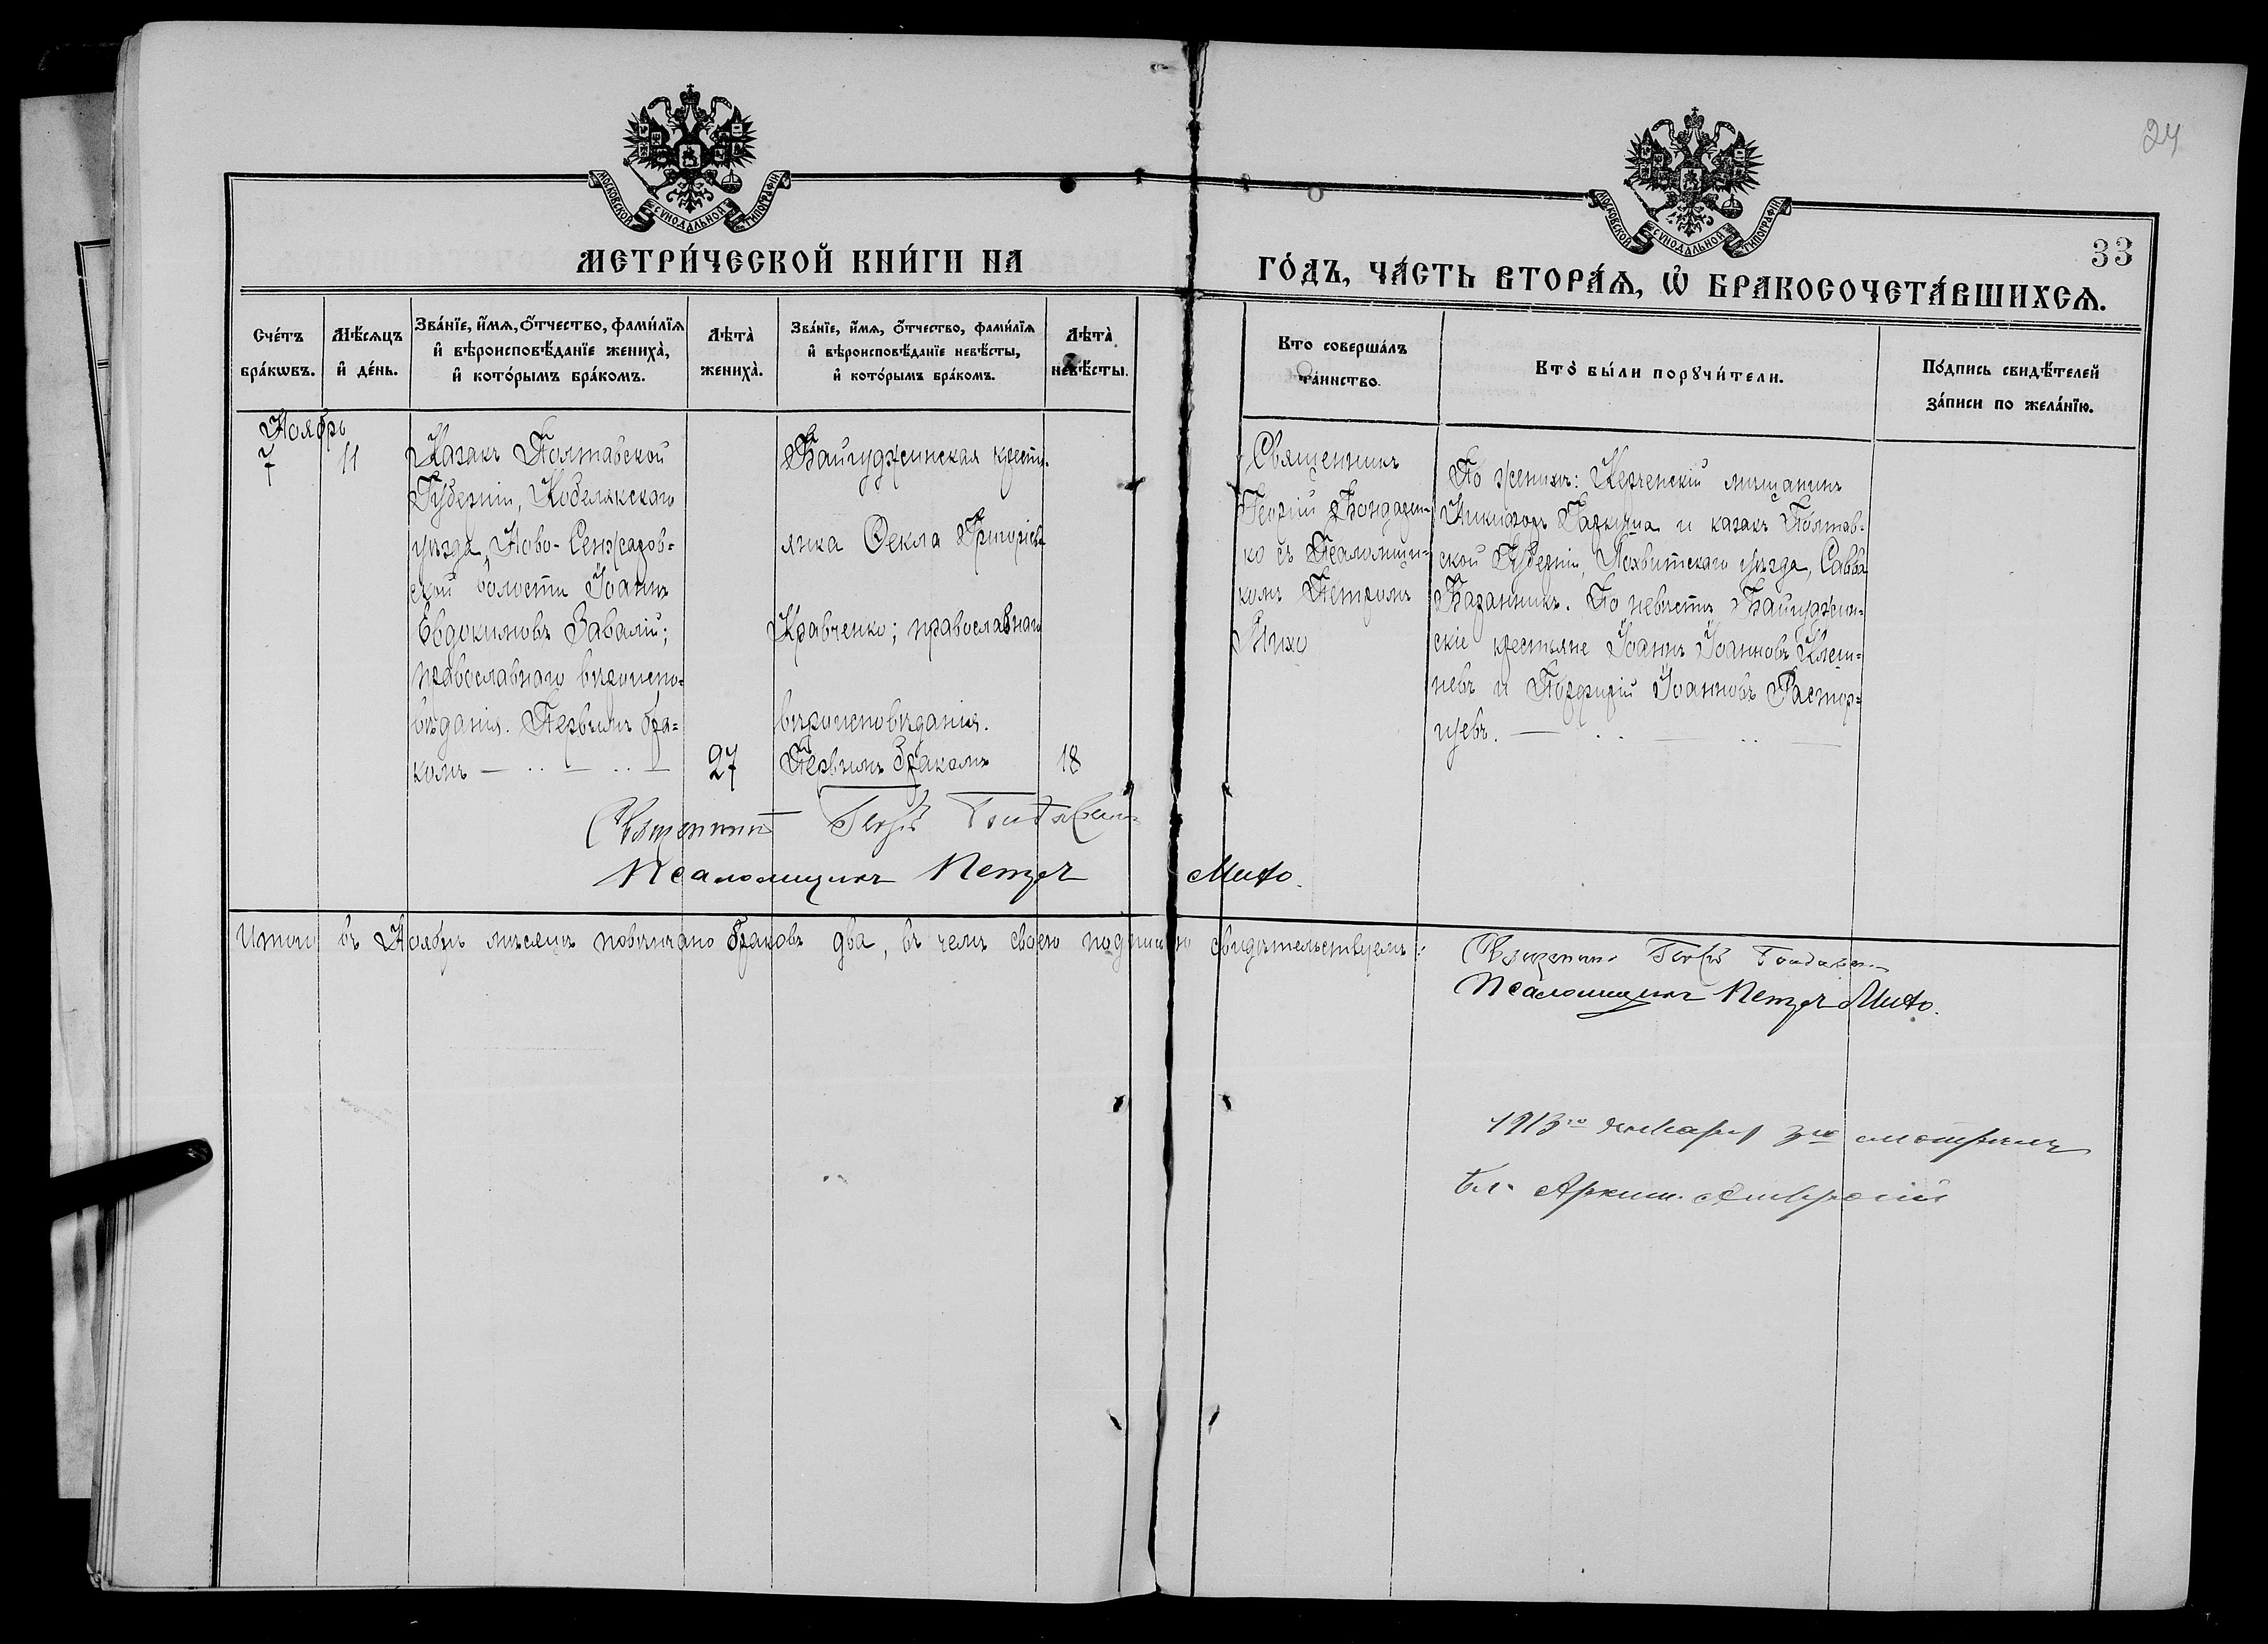 24
МОСКОВСКОЙ СУНОДАЛЬНОЙ ТИПОГРАФІИ
МОСКОВСКОЙ СУНОДАЛЬНОЙ ТИПОГРАФІИ
33
МЕТРИ́ЧЕСКОЙ КНИ́ГИ НА
ГО́ДЪ, ЧА́СТЬ ВТОРА́Ѧ, Ѡ҆ БРАКОСОЧЕТА́ВШИХСѦ.
Сче́тъ
бра́кѡвъ.
Мѣ́сѧцъ
и҆ де́нь.
Зва́нїе, и҆́мѧ, ѻ҆́тчество, фами́лїѧ
и҆ вѣроисповѣ́данїе жениха̀,
и҆ кото́рымъ бра́комъ.
Лѣта̀
жениха̀.
Зва́нїе, и҆́мѧ, ѻ҆́тчество, фами́лїѧ
и҆ вѣроисповѣ́данїе невѣ́сты,
и҆ кото́рымъ бра́комъ.
Лѣта̀
невѣ́сты.
Кто соверша́лъ
та́инство.
Кто̀ бы́ли порꙋчи́тели.
По́дпись свидѣ́телей
за́писи по жела́нїю.
Ноябрь
7
11
Казакъ Полтавской
Губерніи, Кобелякскаго
уѣзда, Ново-Сенжаров-
ской волости Іоаннъ
Евдокимовъ Завалій;
православнаго вѣроиспо-
вѣданія. Первымъ бра-
комъ
27
Байгуджинская крестьянка
янка Ѳекла Григоріева
Кравченко; православнаго
вѣроисповѣданія.
Первымъ бракомъ
18
Священникъ
Георгій Бондарен-
ко съ Псаломщи-
комъ Петромъ
Михо
По женихѣ: Керченскій мѣщанинъ
Никифоръ Гаркуша и казакъ Полтав-
ской Губерніи, Лохвитскаго уѣзда, Савва
Баранникъ. По невѣстѣ Байгуджин-
скіе крестьяне Іоаннъ Іоанновъ
и Порфирій Іоанновъ Растор-
гуевъ.
Священникъ Георгій Бондаренко
Псаломщикъ Петръ Михо.
Итого въ Ноябрѣ мѣсяцѣ повѣнчано браковъ два, въ чемъ своею подписью свидѣтельствуемъ:
Священникъ Георгій Бондаренко
Псаломщикъ Петръ Михо.
1913го января